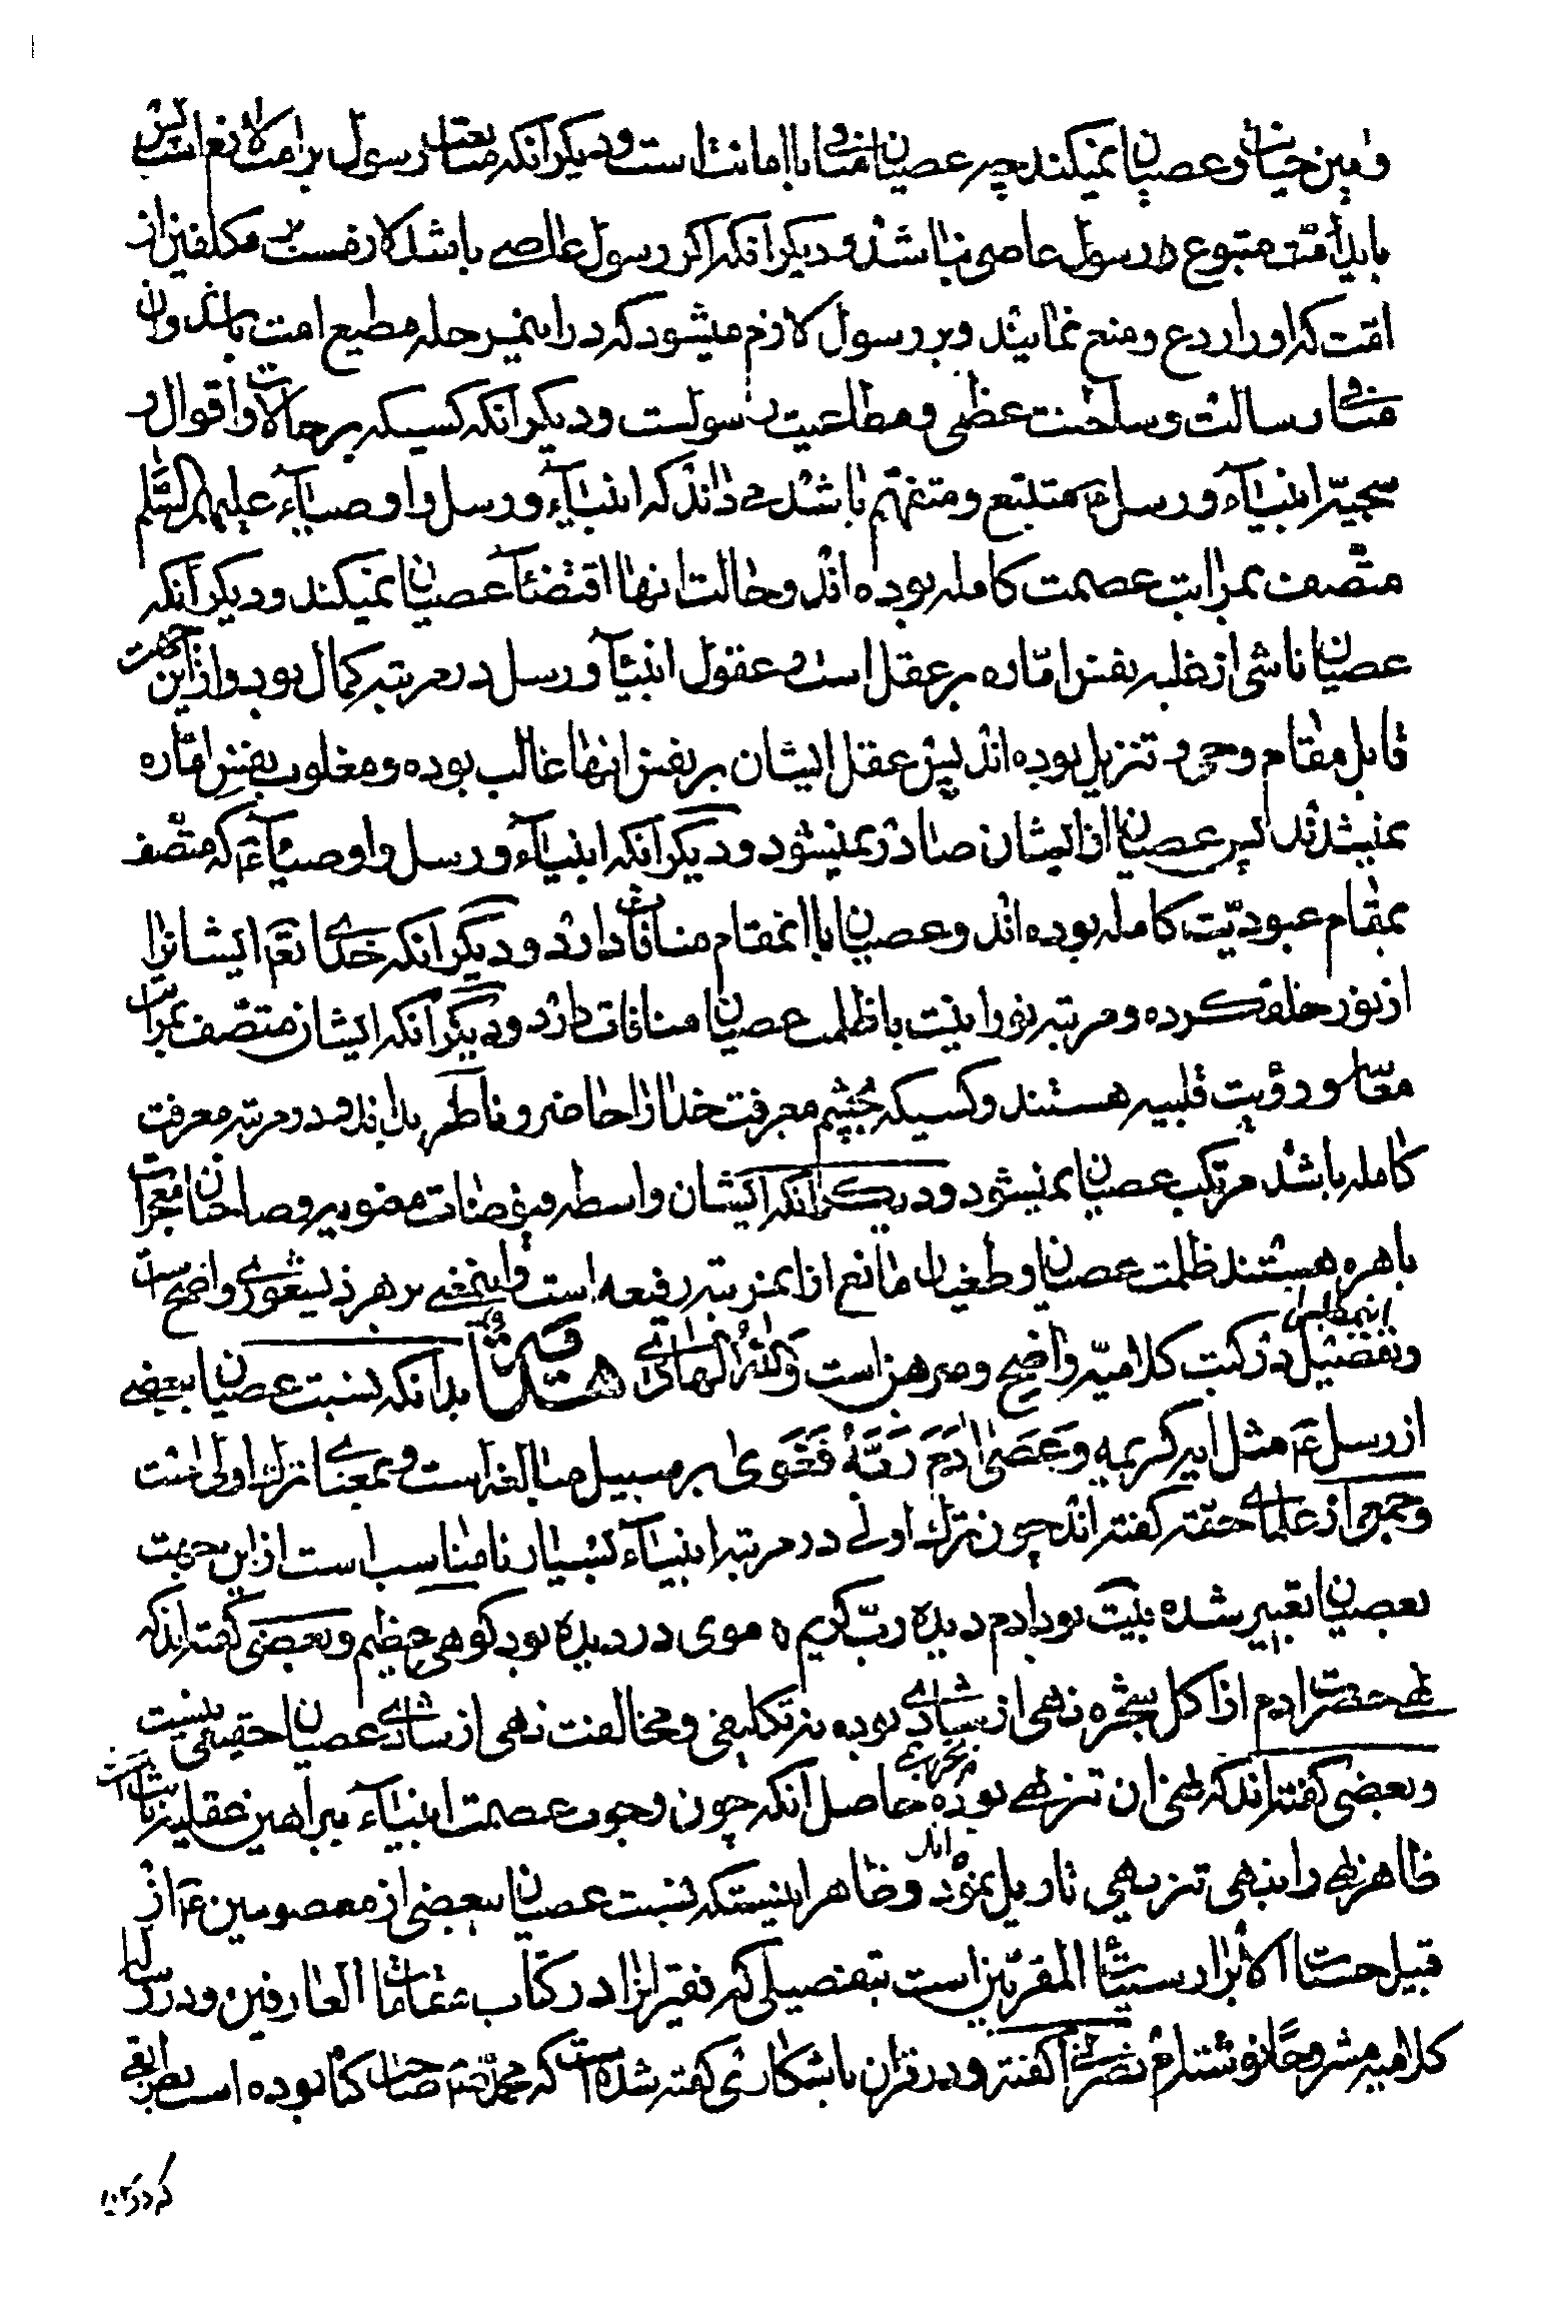 وامین خیانت و عصیان نمیکند چه عصیان منافی با امانت است و دیگر آنکه متابعت رسول بر امت لازم است پس
باید امت متبوع و رسول عاصی نباشد و دیگر انکه اگر رسول عاصی باشد لازمست بر مکلفین از
امّت که او را ردع و منع نمایند و بر رسول لازم میشود که در اینمرحله مطیع امت باشد و ان
منافی رسالت و سلطنت عظمی و مطاعیت رسولست و دیگر انکه کسیکه بر حالات و اقوال و
سجیّه انبیآء و رسل ع متتبع و متفهّم باشد می داند که انبیآء و رسل و اوصیآء علیهم السّلم
متّصف بمراتب عصمت کامله بوده اند و حالت انها اقتضآء عصیان نمیکند و دیگر آنکه
عصیان ناشی از غلبه نفس امّاره بر عقل است و عقول انبیآء و رسل در مرتبه کمال بود و از این جهت
قابل مقام وحی و تنزیل بوده اند پس عقل ایشان بر نفس انها غالب بوده و مغلوب نفس امّاره
نمیشدند پس عصیان از ایشان صادر نمیشود و دیگر آنکه انبیآء و رسل و اوصیآء ع که متّصف
بمقام عبودیّت کامله بوده اند و عصیان با انمقام منافات دارد و دیگر انکه خدای تعم ایشانرا
از نور خلق کرده و مرتبه نورانیت با ظلمت عصیان منافات دارد و دیگر آنکه ایشان متّصف بمراتب
معاینه و رؤیت قلبیه هستند و کسیکه بچشم معرفت خدا را حاضر و ناظر بداند و در مرتبه معرفت
کامله باشد مرتکب عصیان نمیشود و دیگر انکه ایشان واسطه فیوضات و صاحبان معجزات
باهره هستند ظلمت عصیان و طغیان مانع از انمرتبه رفیعه است و اینمعنی بر هر ذیشعوری واضح است
و تفصیل اینمطالب در کتب کلامیّه واضح و مبرهن است وَاللهُ الهادی هدایة بدانکه نسبت عصیان ببعضی
از رسل ع مثل ایه کریمه وَعَصَیٰ ادَمُ رَبَّهُ فَغَوَیٰ بر سبیل مبالغه است و بمعنای ترک اولی است
و جمعی از علمای حقّه گفته اند چون ترک اولی در مرتبه انبیآء بسیار نامناسب است از این جهت
بعصیان تعبیر شده بیت بود ادم دیده ربّ کریم ٥ موی در دیده بود کوهی عظیم و بعضی گفته اند که
نهی حضرت ادم از اکل شجره نهی ارشادی بوده نه تکلیفی و مخالفت نهی ارشادی عصیان حقیقی نیست
و بعضی گفته اند که نهی از ان تنزیهی بوده نه تحریمی حاصل انکه چون وجوب عصمت انبیآء ببراهین عقلیه ثابت است
ظاهر نهی را بنهی تنزیهی تاویل نموده اند و ظاهر اینستکه نسبت عصیان ببعضی از معصومین ع از
قبیل حسنات الابرار سیئات المقرّبین است بتفصیلی که فقیر انرا در کتاب مقامات العارفین و در رساله
کلامیه مشروحًا نوشته‌ام نصرانی گفته و در قران باشکاری گفته شده است که محمّد ص صاحب گناه بوده است بطریقی
که در